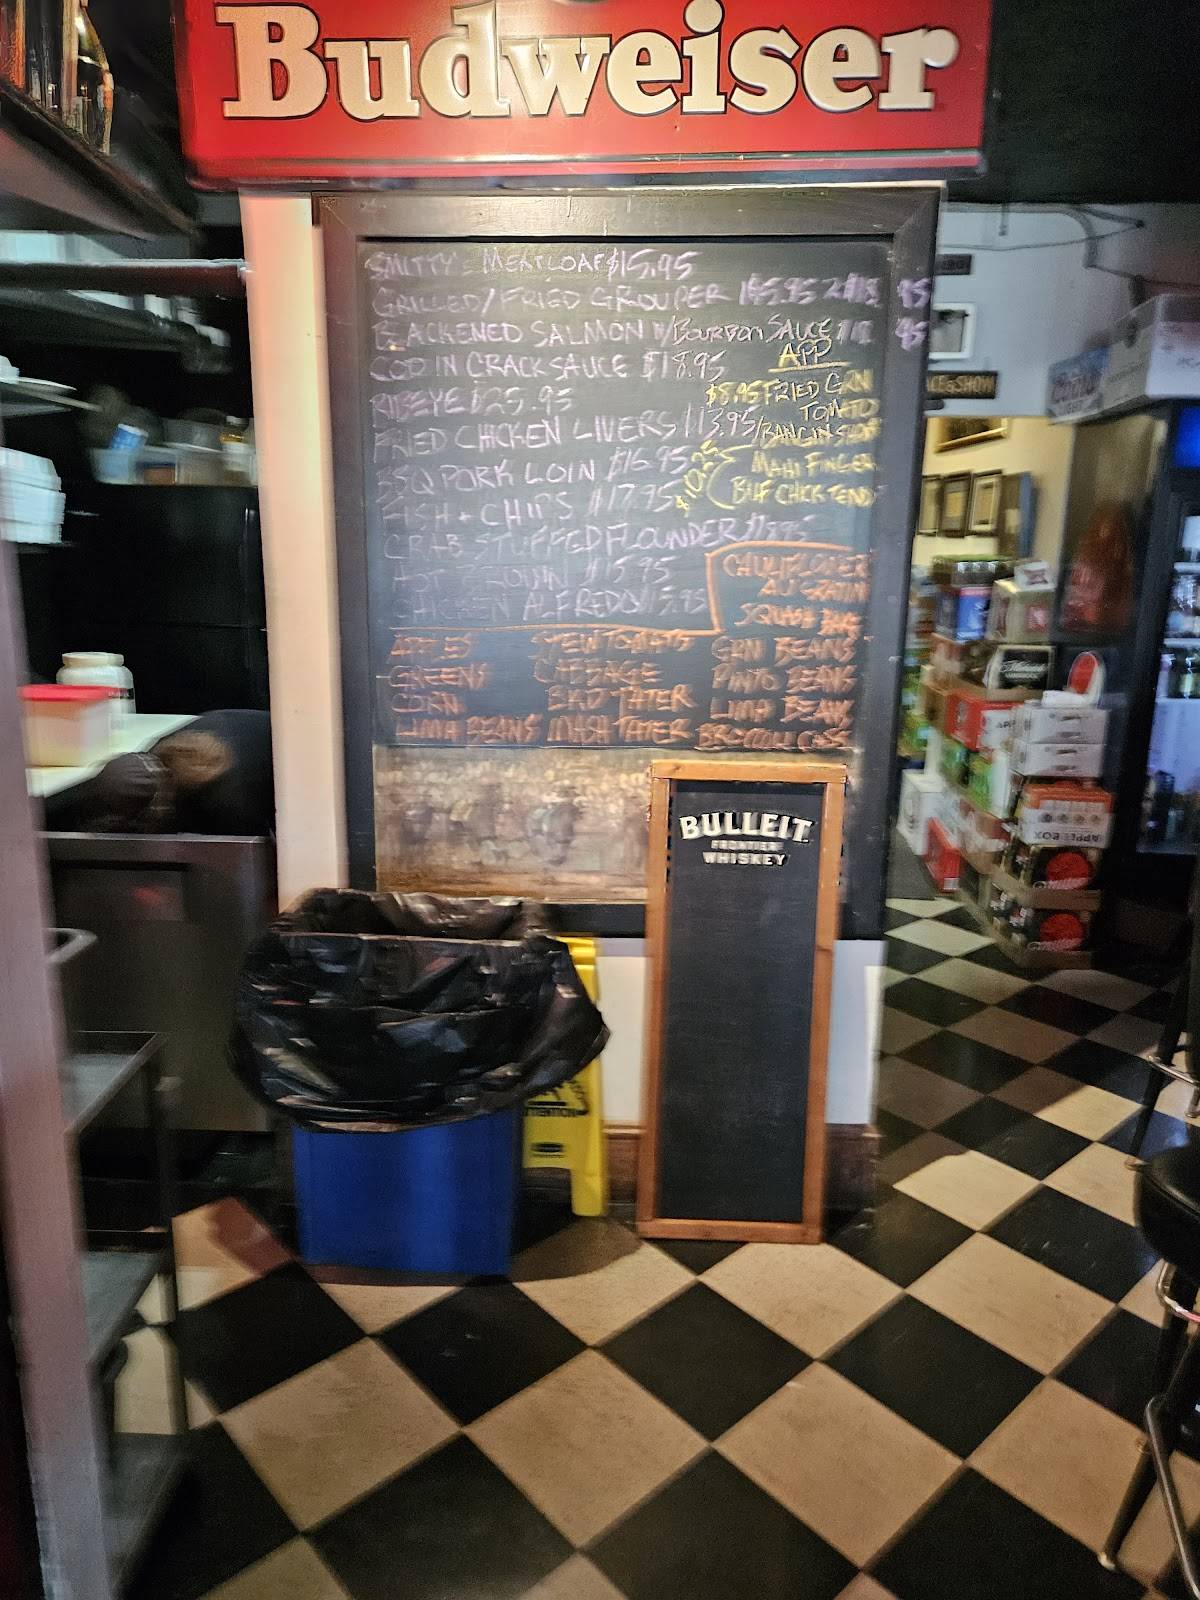 Budweiser
SMITTY'S MEATLOAF $15.95
GRILLED/FRIED GROUPER 1 $15.95 2 $18.95
BLACKENED SALMON W/BOURBON SAUCE 95
COD IN CRACK SAUCE $18.95
RIBEYE $25.95
FRIED CHICKEN LIVERS $13.95
BBQ PORK LOIN $16.95
FISH + CHIPS $17.95
CRAB STUFFED FLOUNDER $18.95
HOT BROWN $15.95
CHICKEN ALFREDO $15.95
APP
$8.95 FRIED GRN
TOMATO
/BANGIN SHRP
$10.95
MAHI FINGER
BUF CHICK TEND
CAULIFLOWER
AU GRATIN
SQUASH
APPLES STEW TOMATS GRN BEANS
GREENS CABBAGE PINTO BEANS
CORN BKD TATER LIMA BEANS
LIMA BEANS MASH TATER BROCCOLI CASS
BULLEIT
FRONTIER
WHISKEY